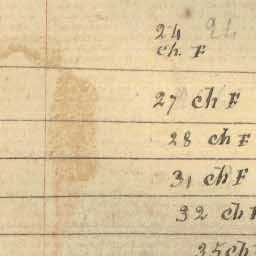 24 24
ch. F
27 ch F
28 ch F
31 ch F
32 ch F
35 ch